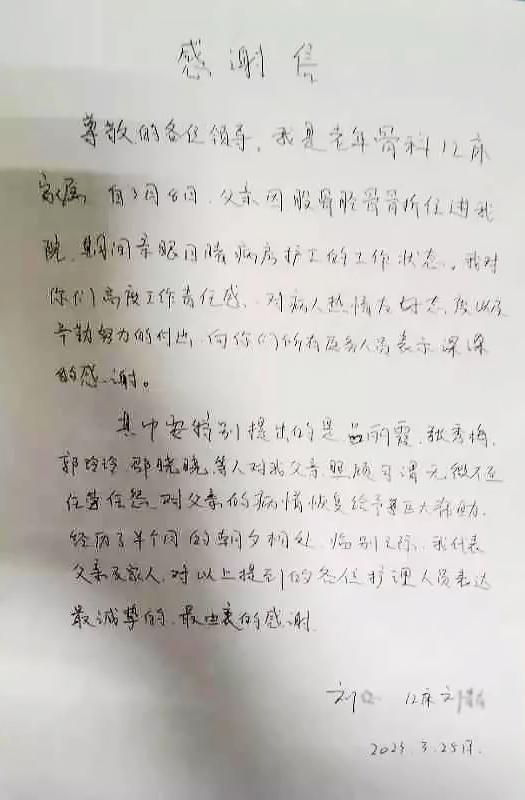 感谢信
尊敬的各位领导，我是老年骨科12床
家属 自3月8日，父亲因股骨胫骨骨折住进我
院，其间亲眼目睹病房护工的工作状态，我对
你们高度工作责任感、对病人热情友好态度以及
辛勤努力的付出，向你们所有医务人员表示深深
的感谢。
其中要特别提出的是吕丽霞、狄秀梅、
郭玲玲、邵晓晓，等人对我父亲照顾可谓无微不至
任劳任怨，对父亲的病情恢复给予巨大帮助，
经历了半个月的朝夕相处，临别之际，我代表
父亲及家人，对以上提到的各位护理人员表达
最诚挚的、最由衷的感谢
刘 12床刘
3.25日.